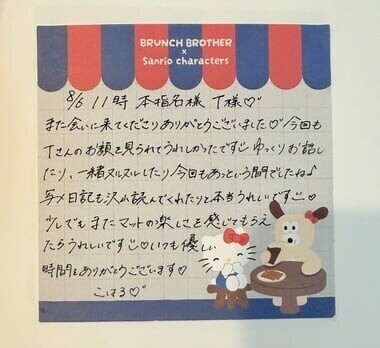 BRUNCH BROTHER
×
Sanrio characters
8/6 11時 本指名様 T様♡
また会いに来てくださりありがとうございました♡ 今回も
Tさんのお顔を見られてうれしかったです ゆっくりお話し
たり、一緒ヌルヌルしたり今回もあっという間でしたね♪
写メ日記も沢山読んでくれたりと本当うれしいです
少しでもまたマットの楽しさを感じてもらえ
たらうれしいです♡ いつも優しい
時間をありがとうございます♡
こはる♡